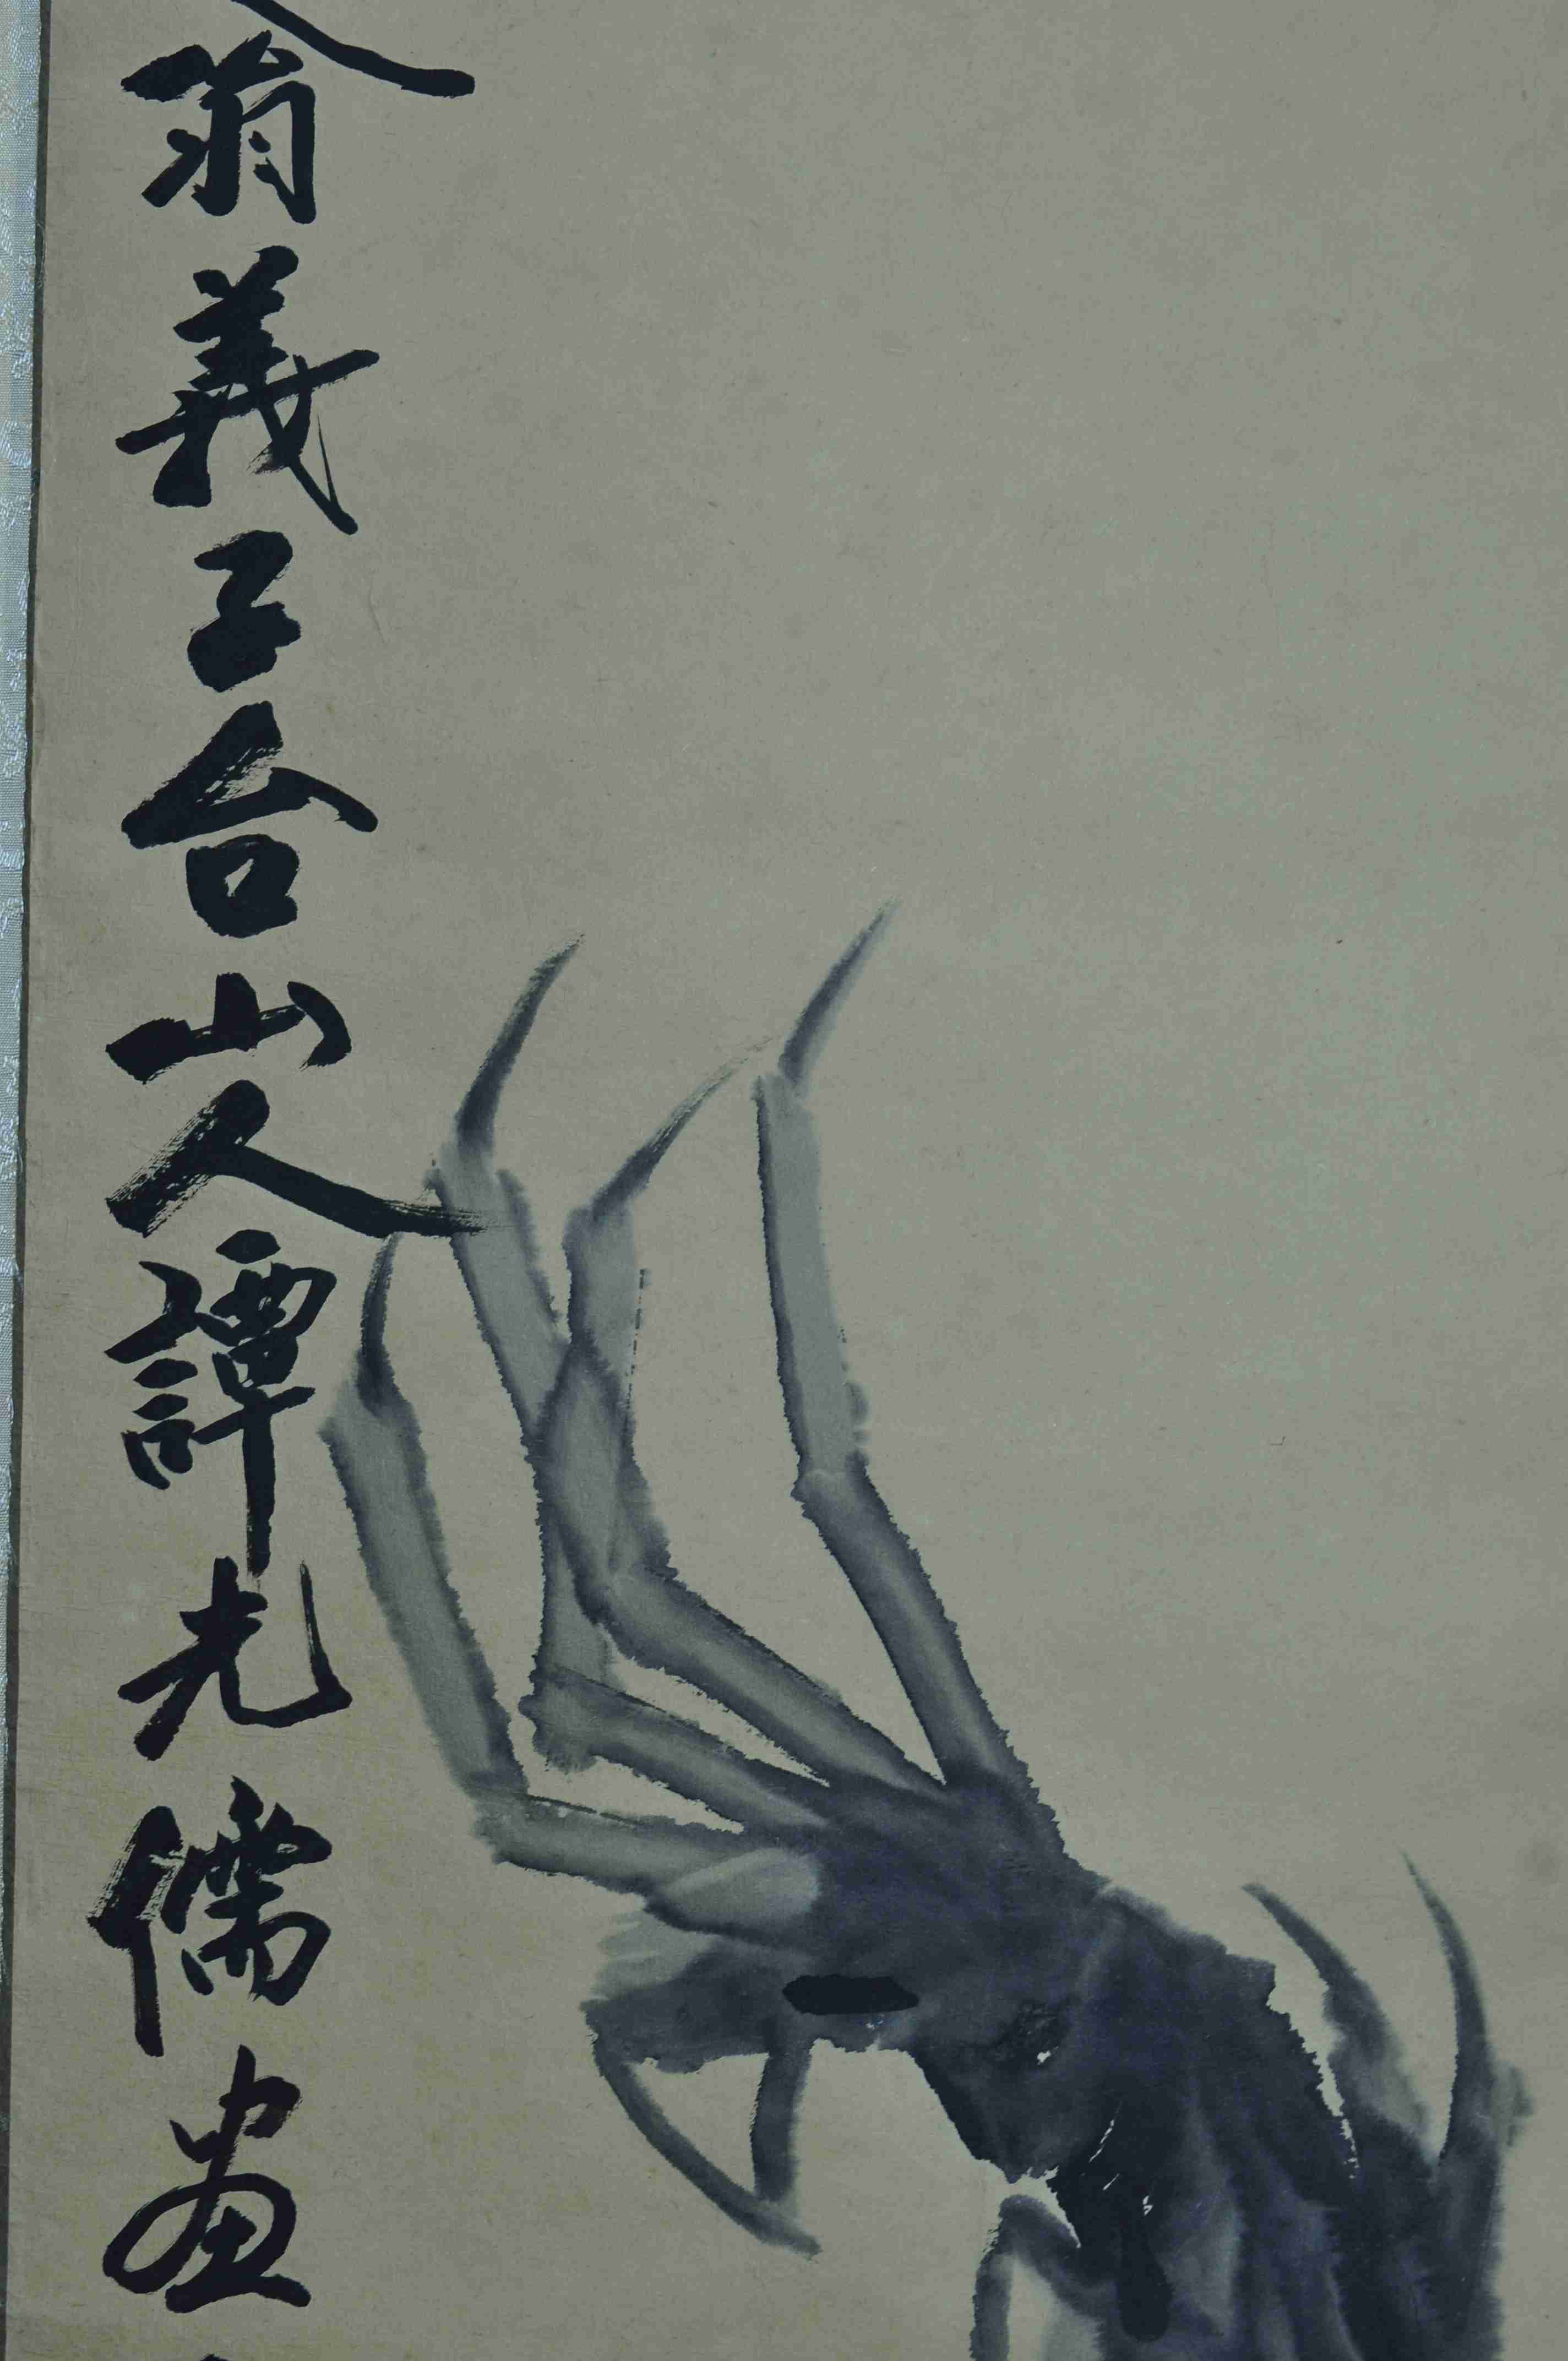 翁義子台山人譚光儒畫